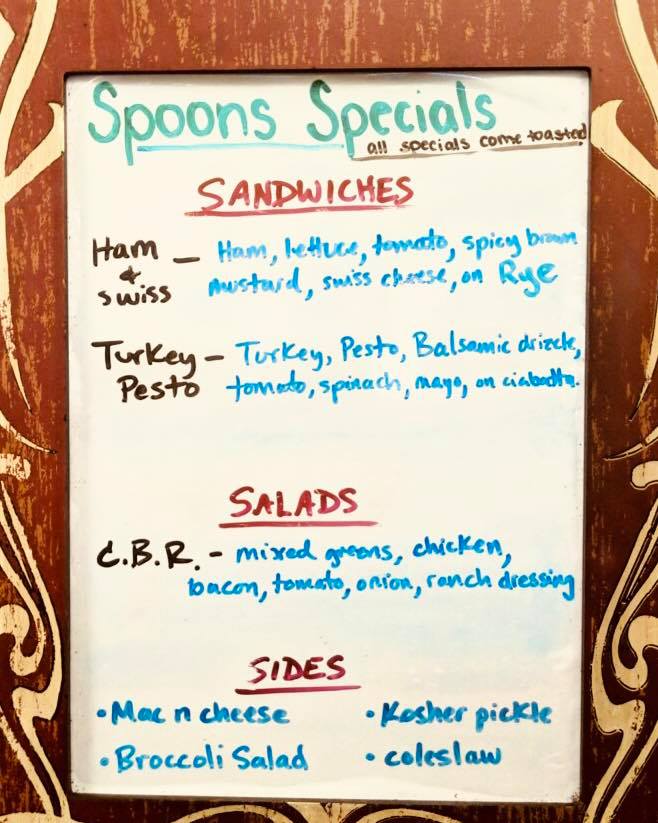 Spoons Specials
all specials come toasted
SANDWICHES
Ham & Swiss - Ham, lettuce, tomato, spicy brown
mustard, swiss cheese, on Rye
Turkey Pesto - Turkey, Pesto, Balsamic drizzle,
tomato, spinach, mayo, on ciabatta.
SALADS
C.B.R. - mixed greens, chicken,
bacon, tomato, onion, ranch dressing
SIDES
• Mac n cheese • Kosher pickle
• Broccoli Salad • coleslaw